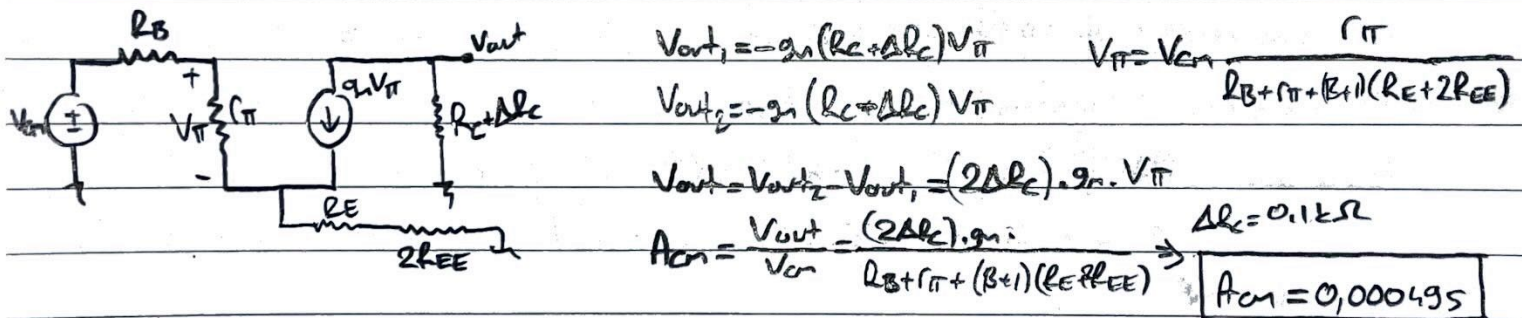 RB
Vout
Vcm
+
Vπ
-
rπ
gmVπ
RC+ΔRC
RE
2REE
Vout₁=-gm(RC+ΔRC)Vπ
Vπ=Vcm rπ / RB+rπ+(β+1)(RE+2REE)
Vout₂=-gm(RC-ΔRC)Vπ
Vout=Vout₂-Vout₁=(2ΔRC).gm.Vπ
Acm=Vout/Vcm=(2ΔRC).gm. / RB+rπ+(β+1)(RE+2REE) →
ΔRC=0.1kΩ
Acm=0,000495